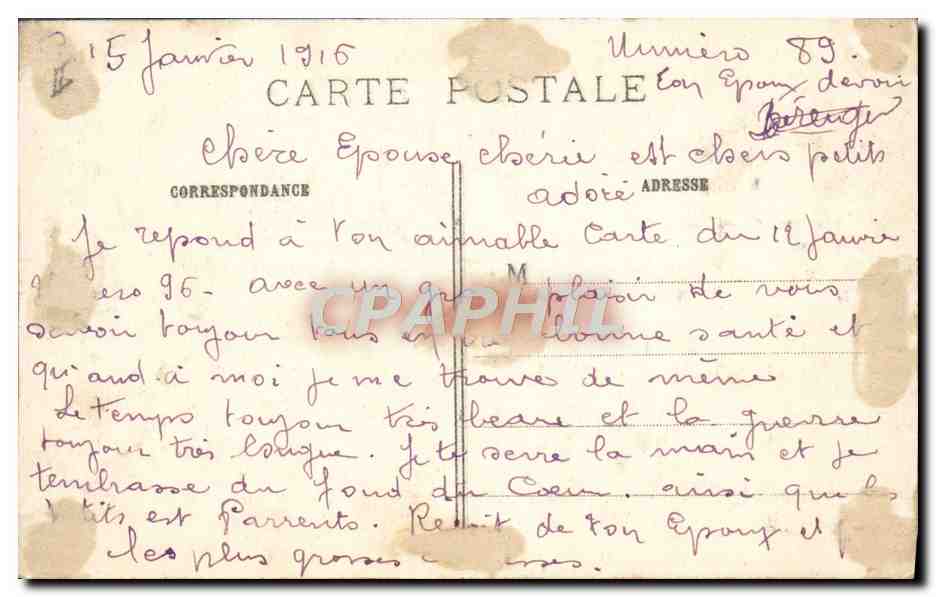 15 Janvier 1916 Numéro 89.
CARTE POSTALE
ton Epoux devoir
Chère Epouse chérie est chers petits
CORRESPONDANCE
adoré ADRESSE
Je repond à ton aimable Carte du 12 Janvie
96 - avec un plaisir de vous
M
CPAPHIL
savoir toujour tous bonne santé et
qu'and à moi je me trouve de même
Le Temps toujour très beau et la guerre
toujour très longue. Je te serre la main et je
tembrasse du fond du Coeur. ainsi que les
est Parrents. Reçoit de ton Epoux et
les plus grosses